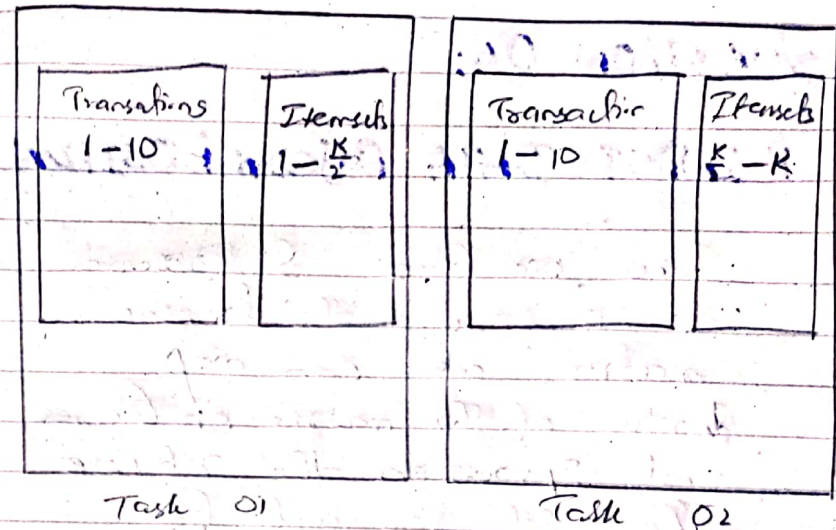 Transations
1 – 10
Itemsets
1 – K/2
Transaction
1 – 10
Itemsets
– K
Task 01
Task 02